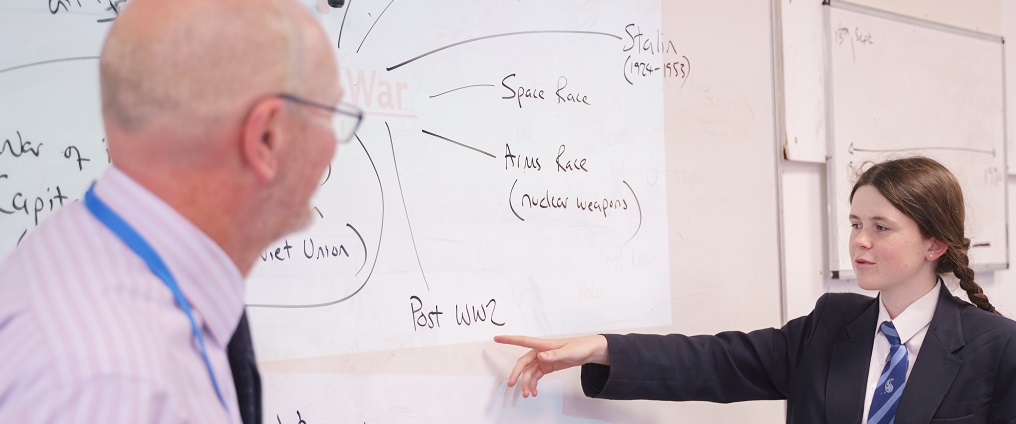 War
Stalin
(1924-1953)
Space Race
Arms Race
(nuclear weapons)
War of
Capit
viet Union)
Post WW2
15th Sept